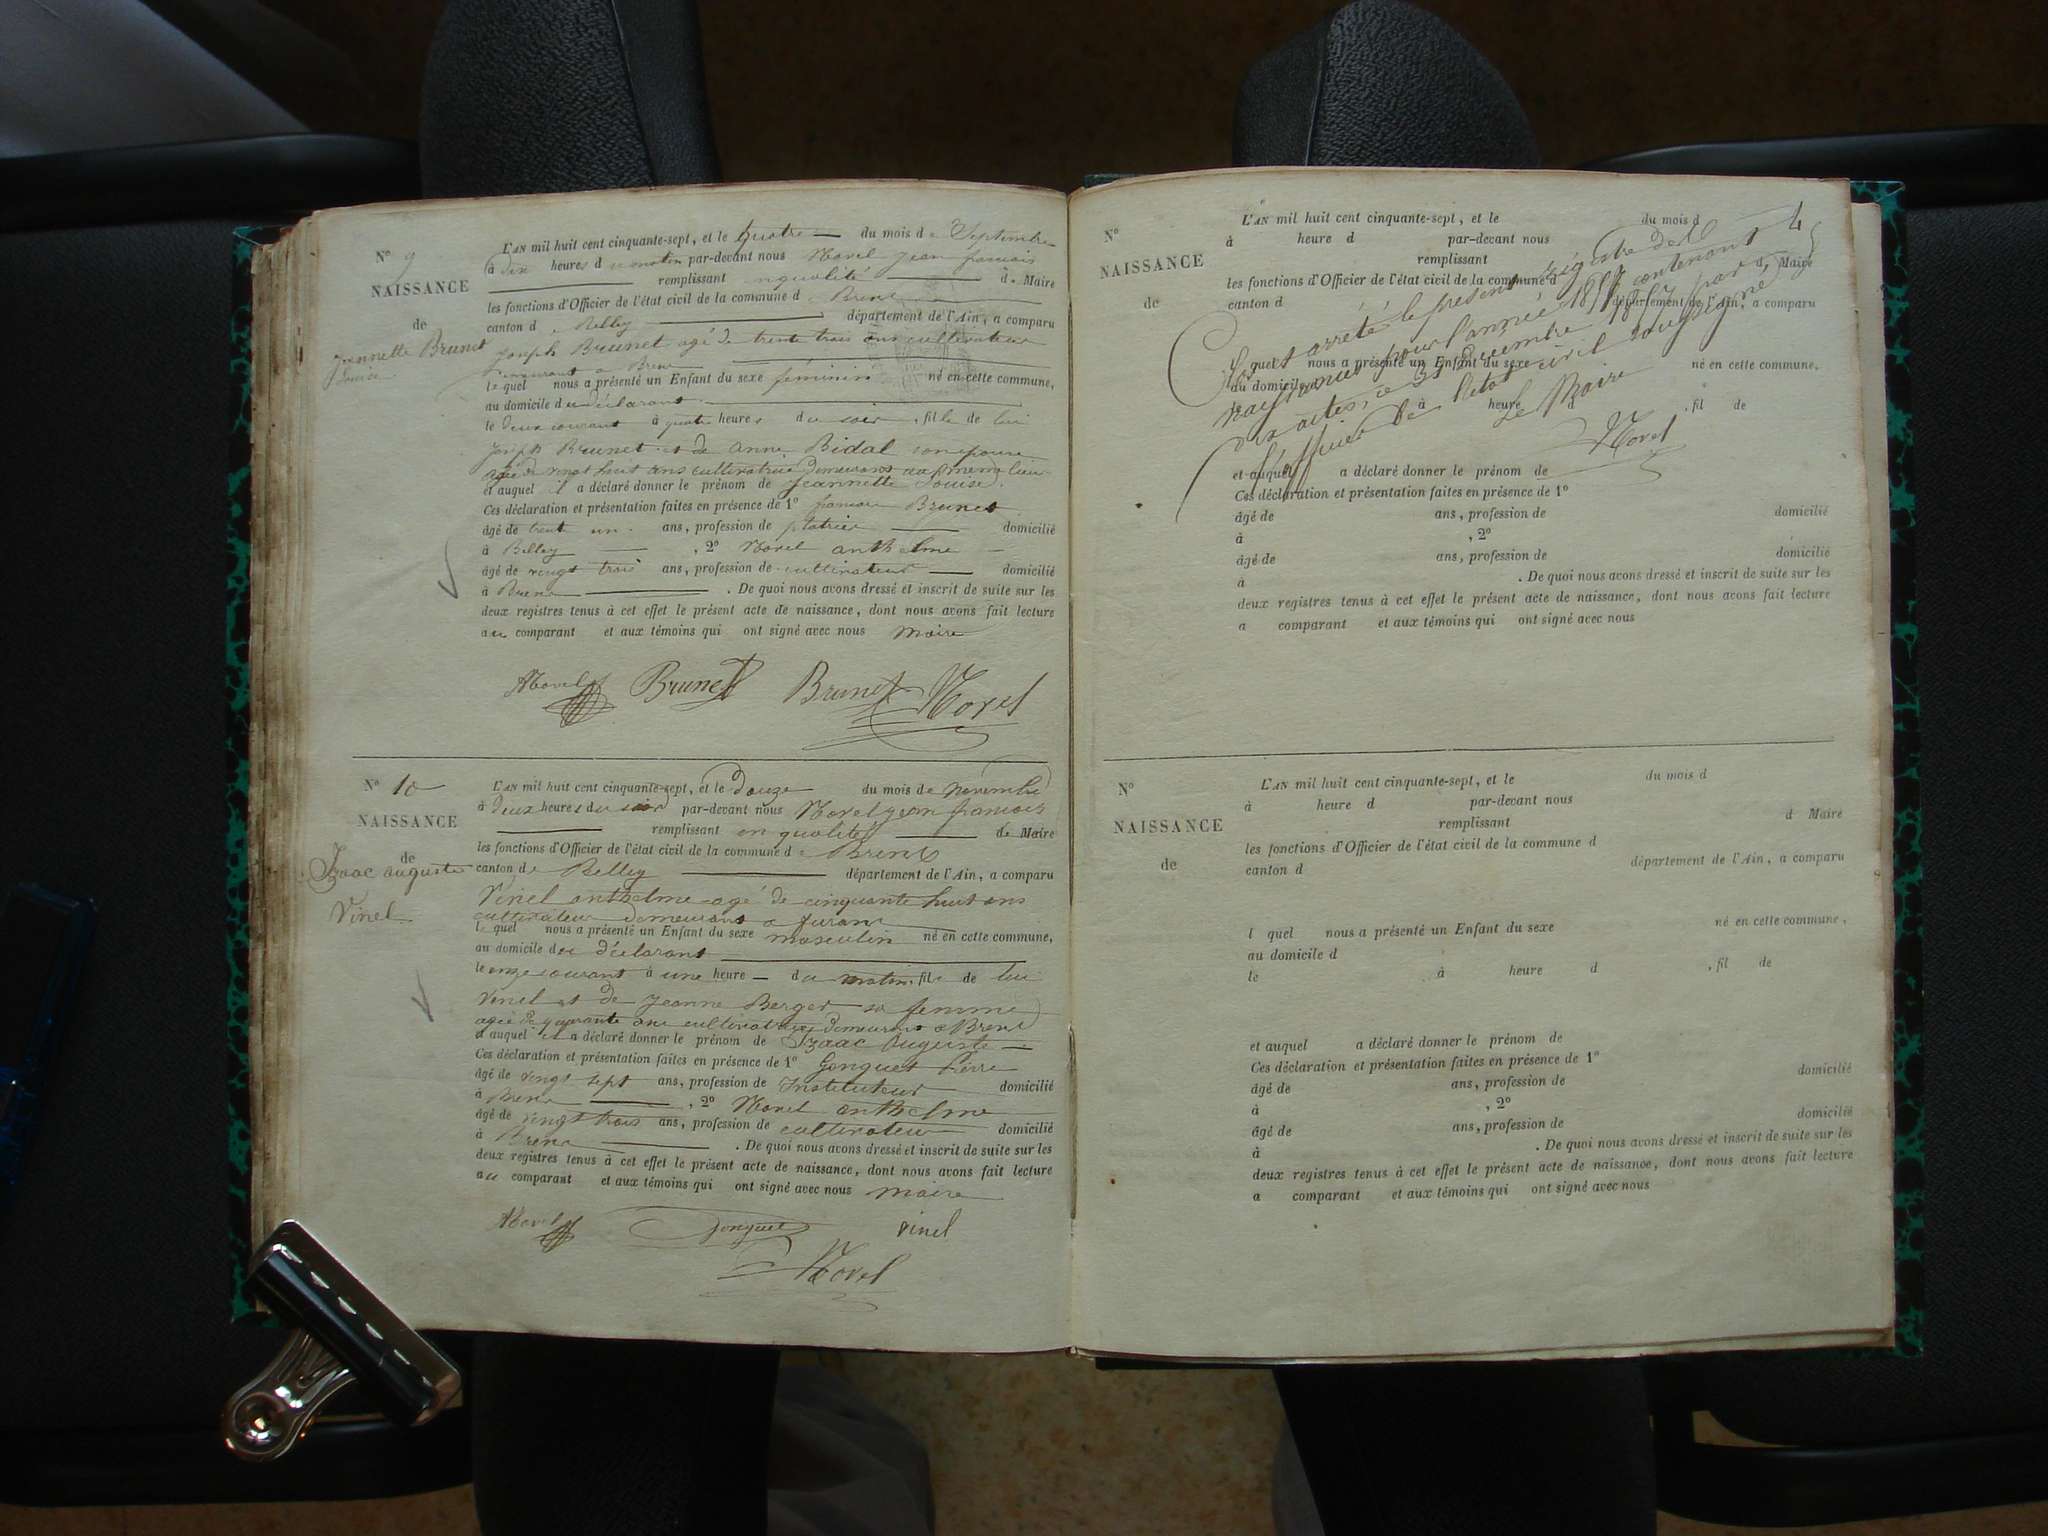 N° 9
NAISSANCE
de
Jeannette Brunet
Louise
L'AN mil huit cent cinquante-sept, et le quatre du mois de Septembre
à dix heures du matin par-devant nous Morel jean francois
remplissant en qualité de Maire
les fonctions d'Officier de l'état civil de la commune de Brens
canton de Belley département de l'Ain, a comparu
joseph Brunet agé de trente trois ans cultivateur
demeurant a Brens
le quel nous a présenté un Enfant du sexe féminin né en cette commune,
au domicile du déclarant
le deux courant à quatre heures du soir, fille de lui
joseph Brunet et de anne Bidal son epouse
agée de vingt huit ans cultivatrice demeurant au meme lieu
et auquel il a déclaré donner le prénom de jeannette Louise.
Ces déclaration et présentation faites en présence de 1° francois Brunet
âgé de trent un ans, profession de platrier domicilié
à Belley, 2° Morel anthelme
âgé de vingt trois ans, profession de cultivateur domicilié
à Brens. De quoi nous avons dressé et inscrit de suite sur les
deux registres tenus à cet effet le présent acte de naissance, dont nous avons fait lecture
au comparant et aux témoins qui ont signé avec nous maire
AMorel Brunet Brunet Morel
N° 10
NAISSANCE
de
Izaac auguste
Vinel
L'AN mil huit cent cinquante-sept, et le douze du mois de novembre
à deux heures du soir par-devant nous Morel jean francois
remplissant en qualité de Maire
les fonctions d'Officier de l'état civil de la commune de Brens
canton de Belley département de l'Ain, a comparu
Vinel anthelme agé de cinquante huit ans
cultivateur demeurant a furans
le quel nous a présenté un Enfant du sexe masculin né en cette commune,
au domicile du déclarant
le onze courant à une heure du matin fils de lui
Vinel et de jeanne Berger sa femme
agée de quarante ans cultivatrice demeurant a Brens
et auquel il a déclaré donner le prénom de Izaac Auguste
Ces déclaration et présentation faites en présence de 1° Gonguet Pierre
âgé de vingt sept ans, profession de Instituteur domicilié
à Brens, 2° Morel anthelme
âgé de vingt trois ans, profession de cultivateur domicilié
à Brens. De quoi nous avons dressé et inscrit de suite sur les
deux registres tenus à cet effet le présent acte de naissance, dont nous avons fait lecture
au comparant et aux témoins qui ont signé avec nous maire
AMorel Gonguet vinel
Morel
N°
NAISSANCE
de
L'AN mil huit cent cinquante-sept, et le du mois d
à heure d par-devant nous
remplissant d Maire
les fonctions d'Officier de l'état civil de la commune d
canton d département de l'Ain, a comparu
Clos et arrété le présent régistre de
naissances pour l'année 1857 contenant
dix actes, ce 31 décembre 1857 par
l'officier de l'état civil soussigné
Le Maire
Morel
l quel nous a présenté un Enfant du sexe né en cette commune,
au domicile d
le à heure d, fil de
et auquel a déclaré donner le prénom de
Ces déclaration et présentation faites en présence de 1°
âgé de ans, profession de domicilié
à, 2°
âgé de ans, profession de domicilié
à. De quoi nous avons dressé et inscrit de suite sur les
deux registres tenus à cet effet le présent acte de naissance, dont nous avons fait lecture
a comparant et aux témoins qui ont signé avec nous
N°
NAISSANCE
de
L'AN mil huit cent cinquante-sept, et le du mois d
à heure d par-devant nous
remplissant d Maire
les fonctions d'Officier de l'état civil de la commune d
canton d département de l'Ain, a comparu
l quel nous a présenté un Enfant du sexe né en cette commune,
au domicile d
le à heure d, fil de
et auquel a déclaré donner le prénom de
Ces déclaration et présentation faites en présence de 1°
âgé de ans, profession de domicilié
à, 2°
âgé de ans, profession de domicilié
à. De quoi nous avons dressé et inscrit de suite sur les
deux registres tenus à cet effet le présent acte de naissance, dont nous avons fait lecture
a comparant et aux témoins qui ont signé avec nous